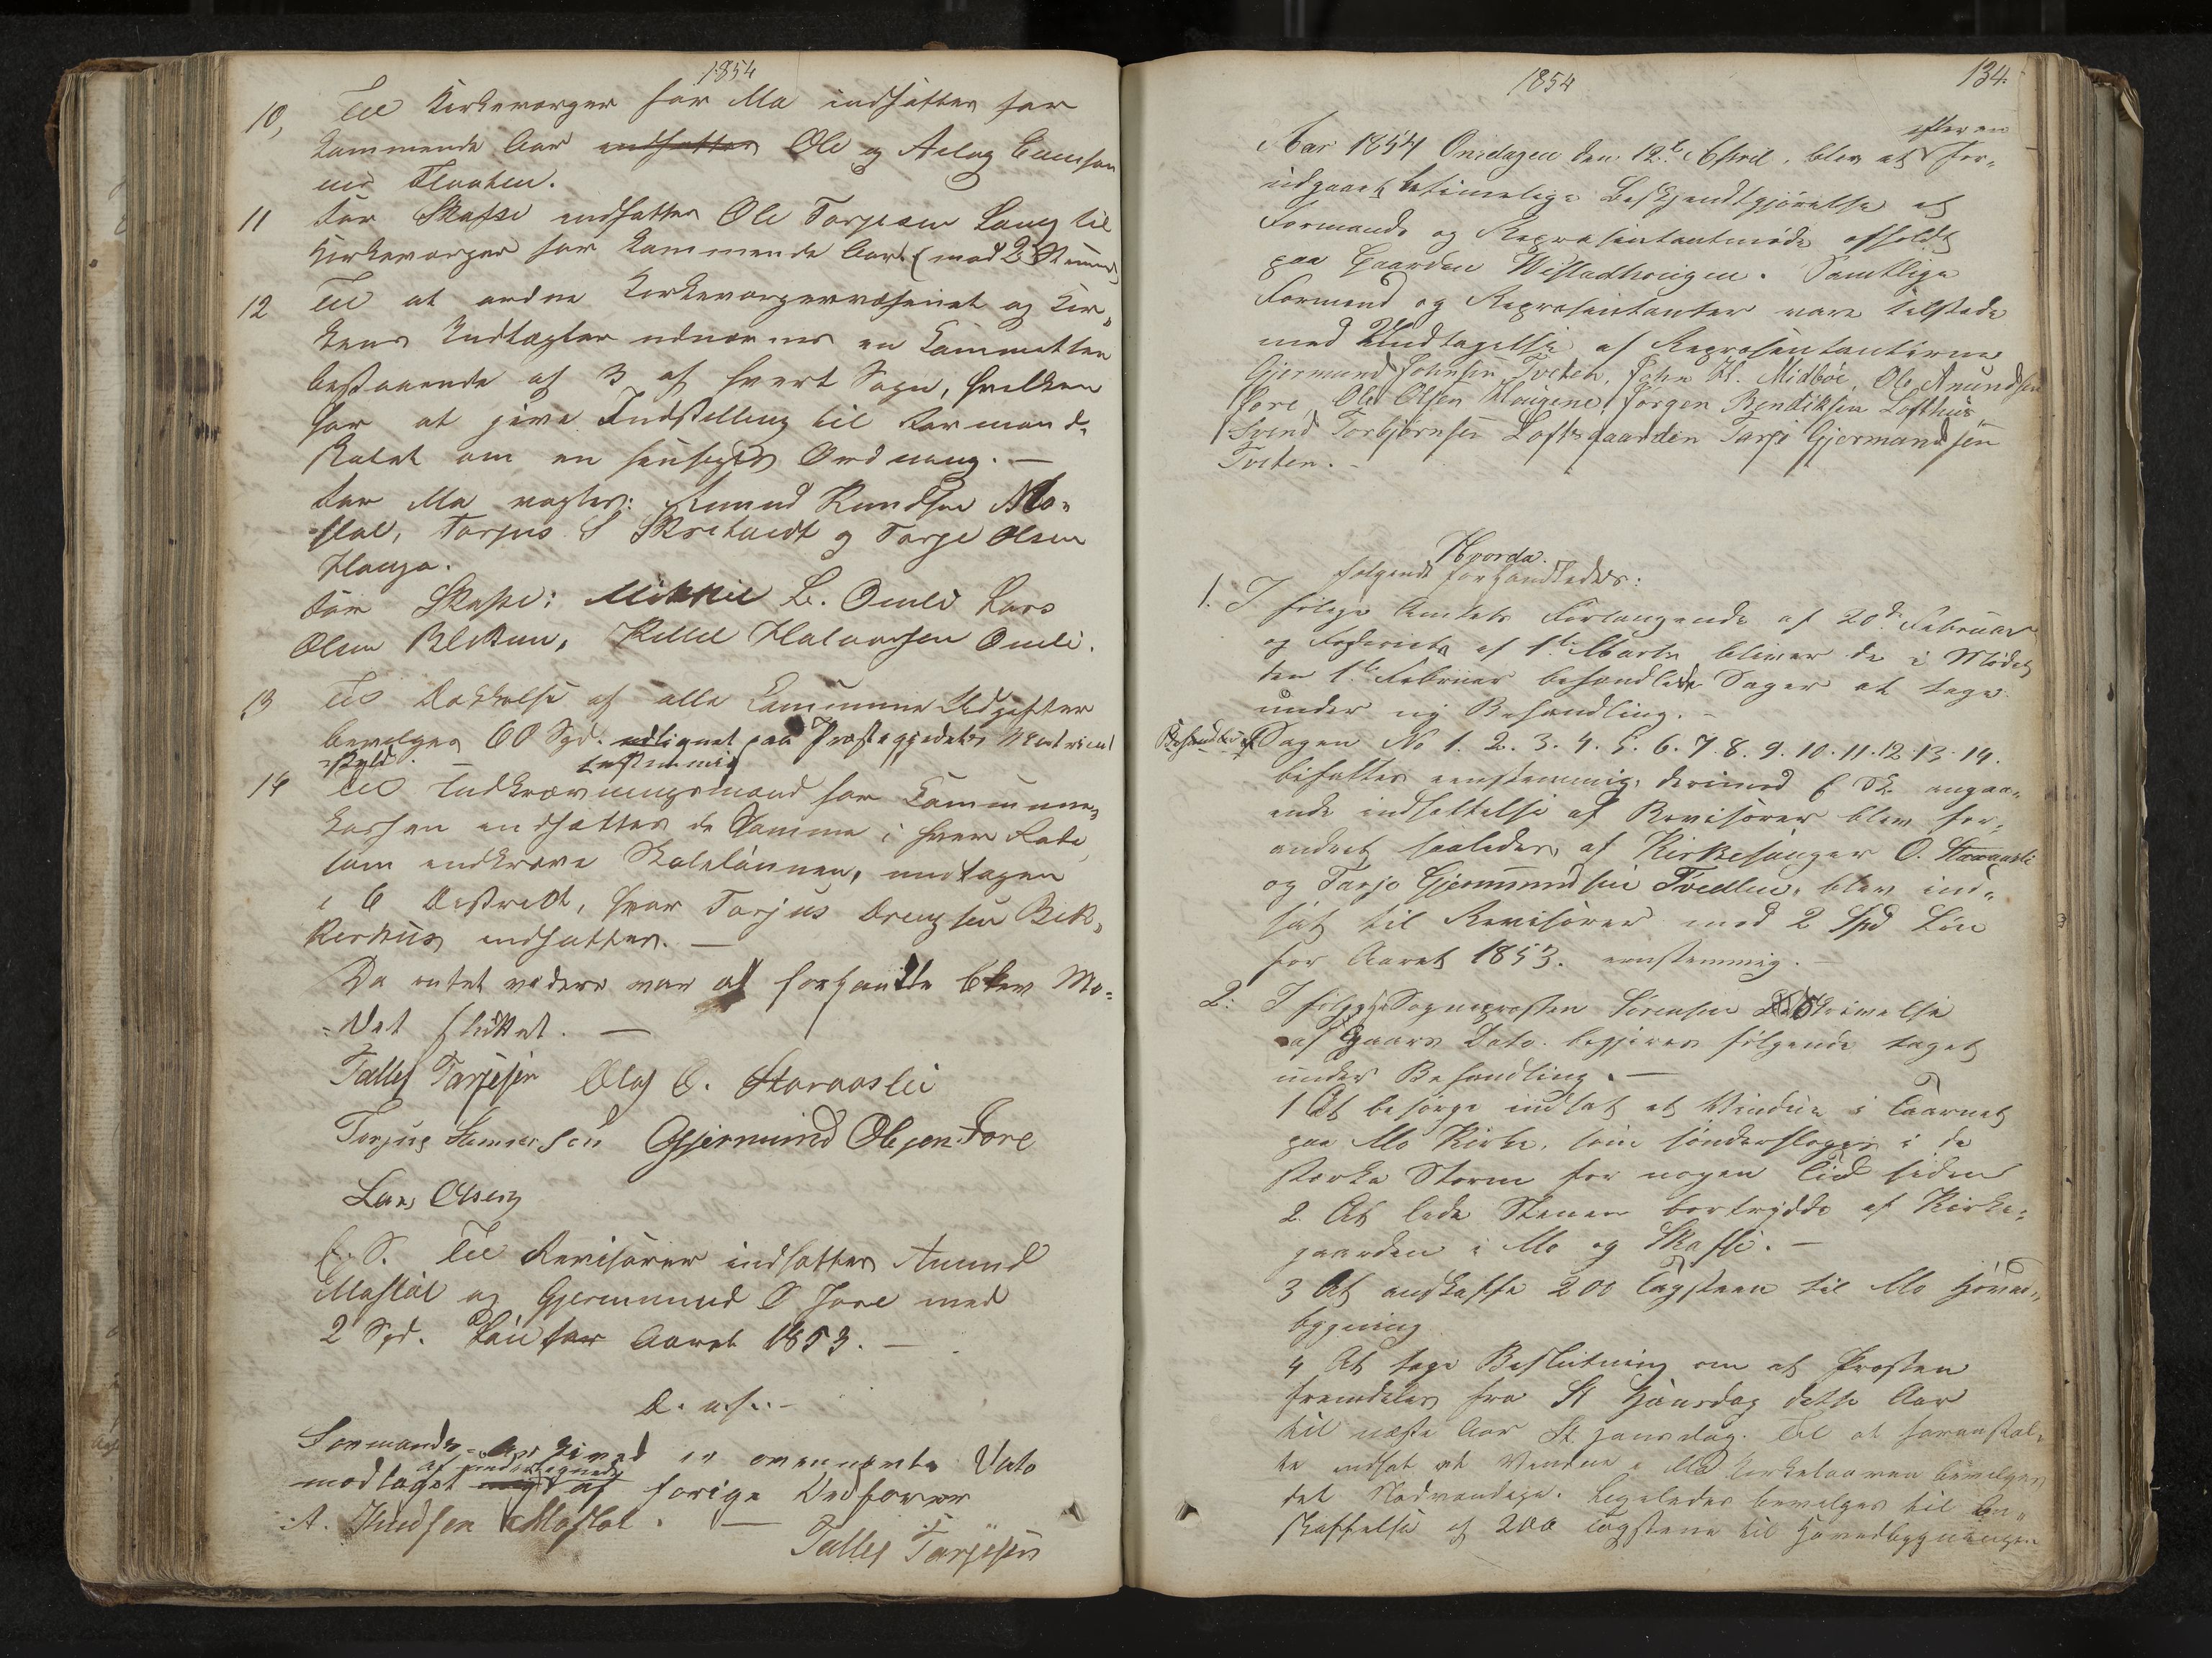 1854
10, Til Kirkeværger for Mo indsættes for
kommende Aar indsættes Ole og Aslag
Flaaten.
11 For Skafse indsættes Ole Torjesen Lang til
Kirkeværger for kommende Aar (mod 2 Stemmer)
12 Til at ordne Kirkeværgervæsenet og Kir-
kens Indtægter udnævnes en Committee
bestaaende af 3 af hvert Sogn, hvilken
har at give Indstilling til Formand-
skabet om en Ordning. —
For Mo valgtes: Aanund Knudsen Mo-
støl, Torjus S Skrehaidt og Torje Olsen
Hauga.
For Skafse: Mikkil L. Omli Lars
Olsen Blekum, Kittil Halvorsen Omli.
13 Til Dækkelse af alle Commune Udgifter
bevilges 60 Spd. udlignet paa Præstegjeldets Matricul
skyld. — eenstemmig
14 Til Indkrævningsmand for Commune-
kassen indsættes de Samme i hver Rode,
som indkræve Skolelønnen, undtagen
i 6 Distrikt, hvor Torjus Drengsen Bek-
kerhus indsættes. —
Da intet videre var at forhandle blev Mø-
det sluttet. —
Tallef Tarjesen Olaf O. Staraaslii
Torjus Gunnersen Gjermund Olsen Fore
Lars Olsen
E. S. Til Revisorer indsættes Anund
Mostøl og Gjermund O Fore med
2 Spd. Løn for Aaret 1853. —
D. u. s. —
Formands-Archivet er ovennævnte Dato
af undertegnede
modtaget af forige Ordfører
A. Knudsen Mostøl. — Tallef Tarjesen
1854
134.
Aar 1854 Onsdagen den 12te April, blev et efter en for-
udgaaet betimelig Bekjendtgjørelse et
Formands og Repræsentantmøde afholdt
paa Gaarden Wistadhougen. Samtlige
Formænd og Repræsentanter vare tilstede
med Undtagelse af Repræsentanterne
Gjermund Johnsen Tveten, John Hl. Midbøe, Ole Anundsen
Fore, Ole Olsen Hougene, Jørgen Bendiksen Lofthus
Svend Torbjørnsen Loftsgaarden Tarje Gjermundsen
Tveten. —
Hvorda
følgende forhandledes:
1. I følge Amtets Forlangende af 20de Februar
og Fogderiets af 1te Marts bliver de i Mødet
den 1te Februar behandlede Sager at tage
under ny Behandling. —
Sagen No 1. 2. 3. 4. 5. 6. 7. 8. 9. 10. 11. 12. 13. 14.
bifattes eenstemmig, derimod E. Sk. angaa-
ende indsættelse af Revisorer blev for-
andret saaledes, at Kirkesanger O. Staraasli
og Tarje Gjermundsen Tvedten, blev ind-
sat til Revisorer med 2 Spd Løn
for Aaret 1853. eenstemmig. —
2: I følge Sognepræsten Sørensen Skrivelse
af Gaars Dato. begjæres følgende taget
under Behandling. —
1 At besørge indsat et Vindue i Taarnet
paa Mo Kirke, som sønderslages i de
stærke Storm for nogen Tid siden
2. At lade Stenen bortrydde af Kirke-
gaarden i Mo og Skafse. —
3 At anskaffe 200 Tagsteen til Mo Hoved-
bygning
4 At tage Beslutning om at Præsten
fremdeles fra St Hansdag dette Aar
til næste Aar St Hansdag. Til at foranstal-
te indsat et Vindue i Mo Kirketaaren bevilges
det Nødvendige. Ligeledes bevilges til An-
skaffelse af 200 Tagstene til Hovedbygningen